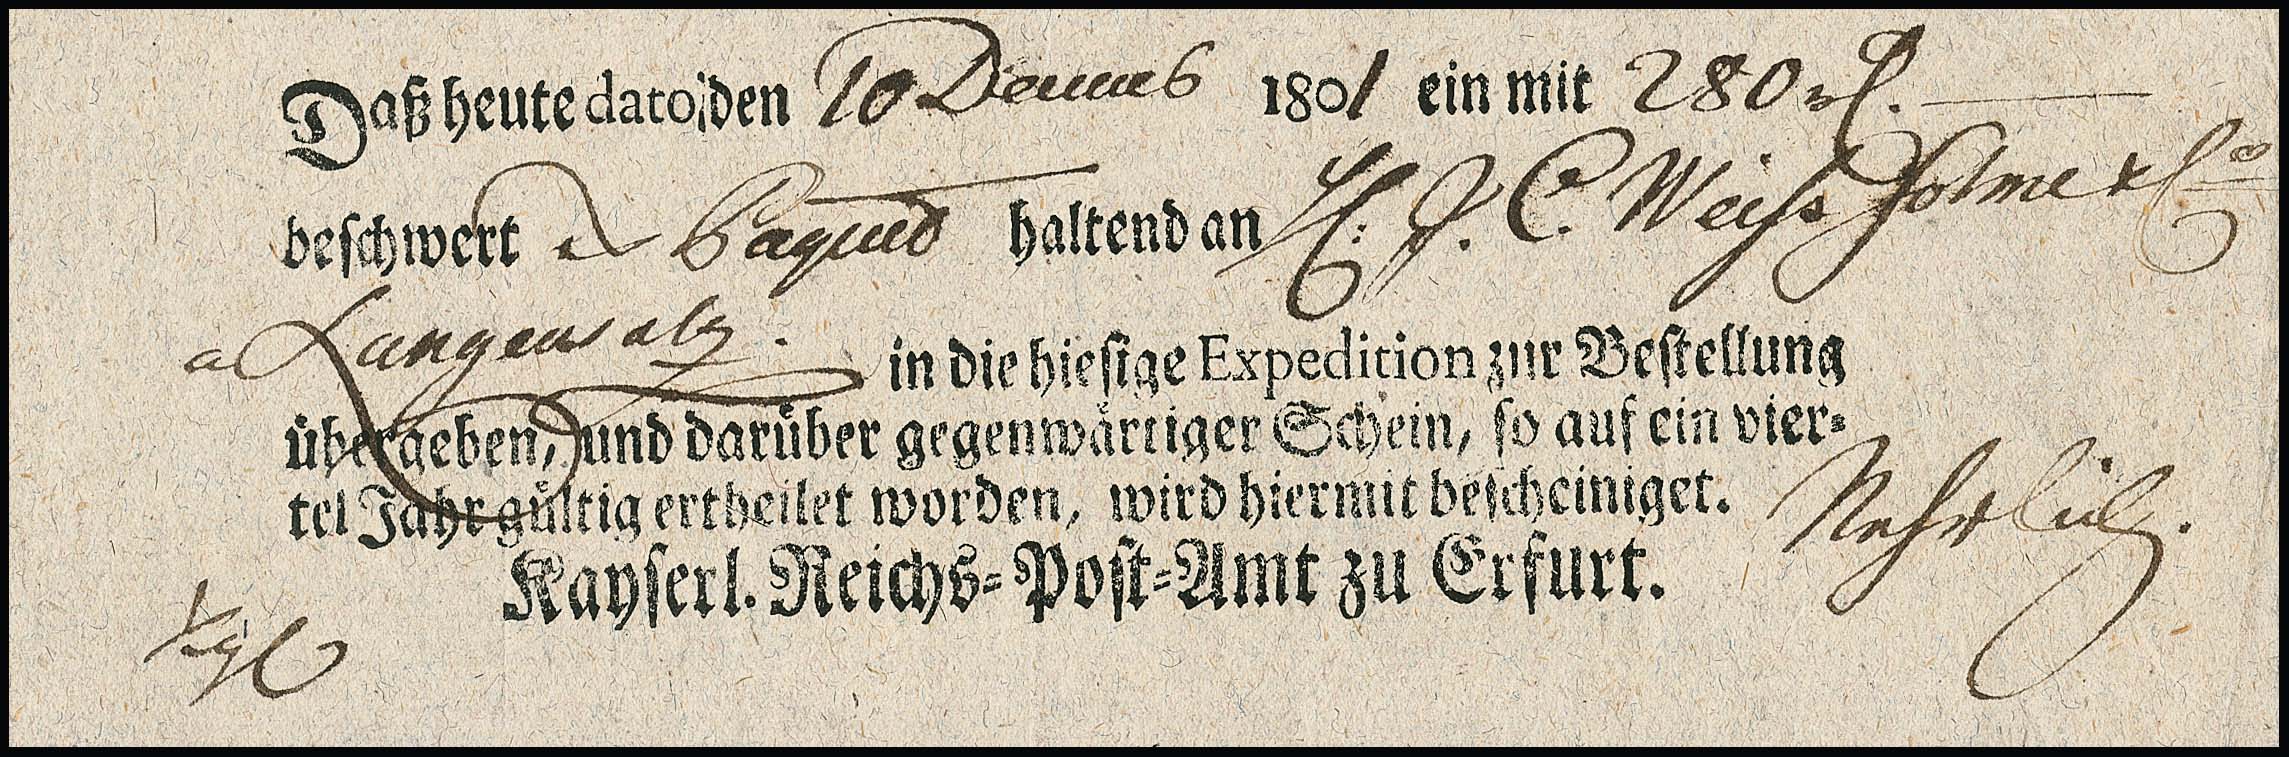 Daß heute dato den 10 Decemb 1801 ein mit 280 rl.
beschwert Paquet haltend an H. J. C. Weiss Sohne & Co
a Langensalz. in die hiesige Expedition zur Bestellung
übergeben, und darüber gegenwärtiger Schein, so auf ein vier-
tel Jahr gültig ertheilet worden, wird hiermit bescheiniget.
Kayserl. Reichs-Post-Amt zu Erfurt.